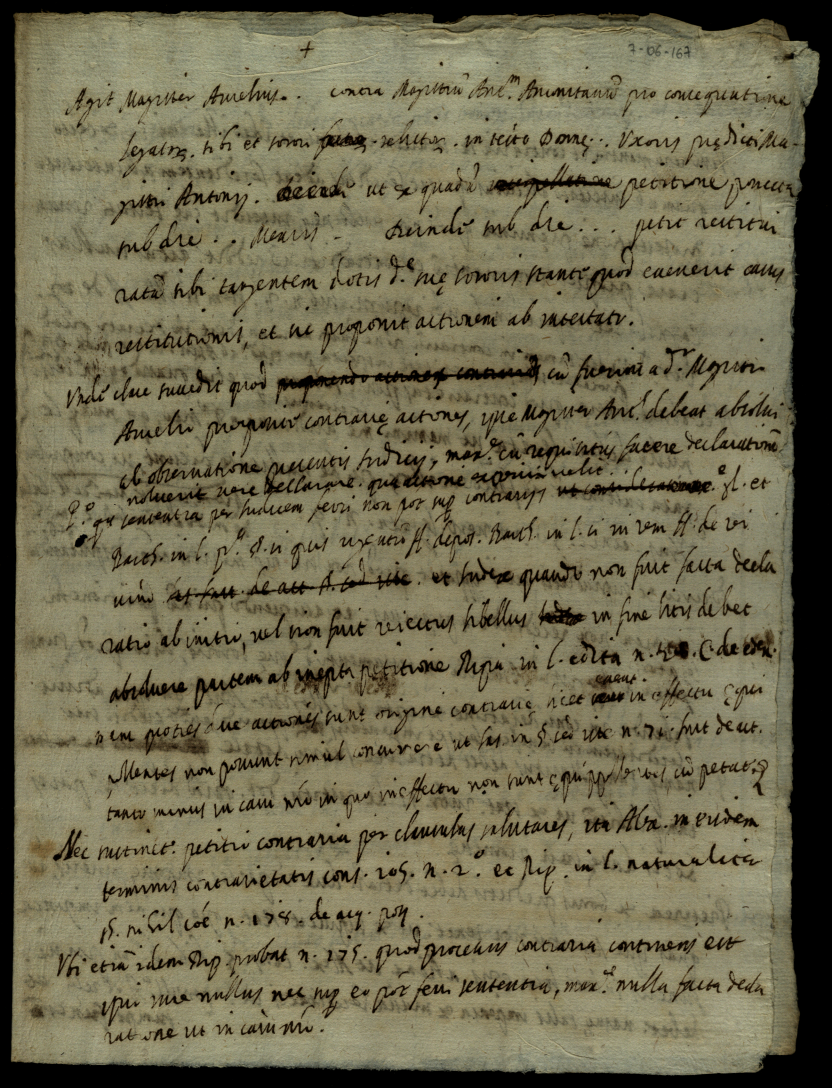 +
7-06-167
Agit Magister Aurelius .. contra Magistrũ Ant.m Anconitanũ pro consequutione
legatoz. sibi et sorori relictoz. in testo Donnę .. Uxoris prędicti Ma-
gistri Antonij. ut ex quadã petitione porrecta
sub die .. Mensis - Deinde sub die ... petit restitui
ratã sibi tangentem dotis d.e suę sororis stante quod evenerit casus
restitutionis, et sic proponit actionem ab intestato.
Unde clare succedit quod cũ fuerint a d.o Magistro
Aurelio propositę contrarię actiones, ipse Magister Ant.s debeat absolvi
ab observatione presentis Judicij, max.e cũ requisitus facere declarationẽ
noluerit nec declarare qua actione experiri velit
P.o qa sententia per Judicem ferri non pot sup contrarijs gl. et
Bart. in l. p.a §. si quis ff. depos. Bart. in l. si in rem ff. de rei
vind. et Judex quando non fuit facta decla
ratio ab initio, vel non fuit reiectus libellus in fine litis debet
absolvere partem ab inepta petitione Ripa in l. edita n. C. de eden.
nam quoties due actiones sunt origine contrarię licet in effectu ęqui
pollentes non possunt simul concurrere ut Jas. in §. sed iste n. 71. Inst. de act.
tanto minus in casu nro in quo in effectu non sunt ęquippollentes, cũ petat
Nec sustinet.r petitio contraria per clausulas salutares, ita Alex. in eisdem
terminis contrarietatis cons. 105. n. 2.o et Rip. in l. naturaliter
§. nihil coẽ n. 178. de acq. poss.
Ubi etiã idem Rip. probat n. 175. quod processus contraria continens est
ipso iure nullus nec sup eo pot ferri sententia, max.e nulla facta decla
ratione ut in casu nro.